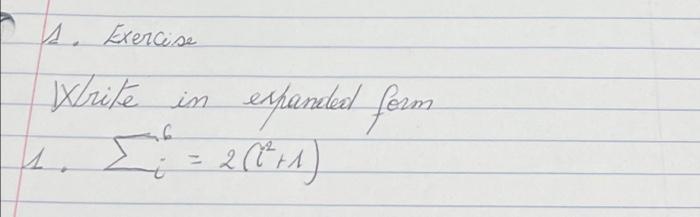 1. Exercise
Write in expanded form
1. ∑⁶ᵢ = 2(i²+1)